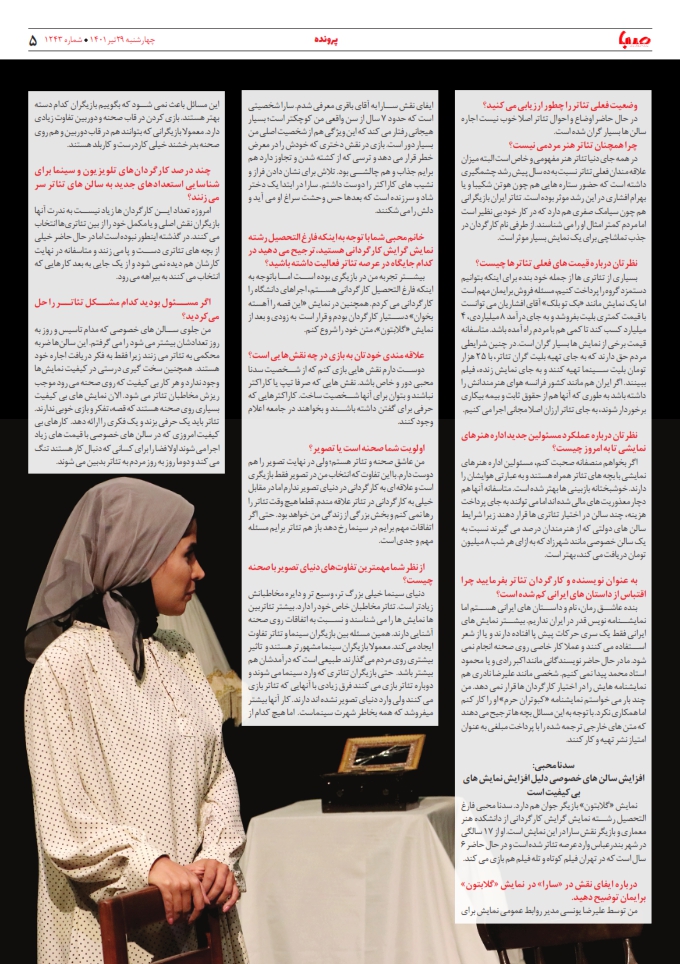 صبا
پرونده
چهارشنبه ۲۹ تیر ۱۴۰۱ • شماره ۱۲۴۳
۵
وضعیت فعلی تئاتر را چطور ارزیابی می کنید؟
در حال حاضر اوضاع و احوال تئاتر اصلا خوب نیست اجاره
سالن ها بسیار گران شده است.
چرا همچنان تئاتر هنر مردمی نیست؟
در همه جای دنیا تئاتر هنر مفهومی و خاص است البته میزان
علاقه مندان فعلی تئاتر نسبت به ده سال پیش رشد چشمگیری
داشته است که حضور ستاره هایی هم چون هوتن شکیبا و یا
بهرام افشاری در این رشد موثر بوده است. تئاتر ایران بازیگرانی
هم چون سیامک صفری هم دارد که در کار خود بی نظیر است
اما مردم کمتر امثال او را می شناسند. از طرفی نام کارگردان در
جذب تماشاچی برای یک نمایش بسیار موثر است.
نظرتان درباره قیمت های فعلی تئاتر ها چیست؟
بسیاری از تئاتری ها از جمله خود بنده برای اینکه بتوانیم
دستمزد گروه را پرداخت کنیم، مسئله فروش برایمان مهم است
اما یک نمایش مانند «یک تو بلک» آقای افشاریان می توانست
با قیمت کمتری بلیت بفروشد و به جای درآمد ۸ میلیاردی، ۴
میلیارد کسب کند تا کمی هم با مردم راه آمده باشد. متاسفانه
قیمت برخی از نمایش ها بسیار گران است. در چنین شرایطی
مردم حق دارند که به جای تهیه بلیت گران تئاتر، با ۲۵ هزار
تومان بلیت سینما تهیه کنند و به جای نمایش زنده، فیلم
ببینند. اگر ایران هم مانند کشور فرانسه هوای هنرمندانش را
داشته باشد به طوری که آنها هم از حقوق ثابت و بیمه بیکاری
برخوردار شوند، به جای تئاتر ارزان اصلا مجانی اجرا می کنیم.
نظرتان درباره عملکرد مسئولین جدید اداره هنرهای
نمایشی تا به امروز چیست؟
اگر بخواهم منصفانه صحبت کنم، مسئولین اداره هنرهای
نمایشی با بچه های تئاتر همراه هستند و به عبارتی هوایشان را
دارند. خوشبختانه بازبینی ها بهتر شده است. متاسفانه آنها هم
دچار معذوریت های مالی شده اند اما می توانند به جای پرداخت
هزینه، چند سالن در اختیار تئاتری ها قرار دهند زیرا شرایط
سالن های دولتی که از هنرمندان درصد می گیرند نسبت به
یک سالن خصوصی مانند شهرزاد که به ازای هر شب ۸ میلیون
تومان دریافت می کند، بهتر است.
به عنوان نویسنده و کارگردان تئاتر بفرمایید چرا
اقتباس از داستان های ایرانی کم شده است؟
بنده عاشق رمان، نام و داستان های ایرانی هستم اما
نمایشنامه نویس قدر در ایران نداریم. بیشتر نمایش های
ایرانی فقط یک سری حرکات پیش پا افتاده دارند و یا از شعر
استفاده می کنند و عملا کار خاصی روی صحنه انجام نمی
شود. ما در حال حاضر نویسندگانی مانند اکبر رادی و یا محمود
استاد محمد پیدا نمی کنیم. شخصی مانند علیرضا نادری هم
نمایشنامه هایش را در اختیار کارگردان ها قرار نمی دهد. من
چند بار می خواستم نمایشنامه «کبوتران حرم» او را کار کنم
اما همکاری نکرد. با توجه به این مسائل بچه ها ترجیح می دهند
که متن های خارجی ترجمه شده را با پرداخت مبلغی به عنوان
امتیاز نشر تهیه و کار کنند.
سدنا محبی:
افزایش سالن های خصوصی دلیل افزایش نمایش های
بی کیفیت است
نمایش «گلابتون» بازیگر جوان هم دارد. سدنا محبی فارغ
التحصیل رشته نمایش گرایش کارگردانی از دانشکده هنر
معماری و بازیگر نقش سارا در این نمایش است. او از ۱۷ سالگی
در شهر بندرعباس وارد عرصه تئاتر شده است و در حال حاضر ۶
سال است که در تهران فیلم کوتاه و تله فیلم هم بازی می کند.
درباره ایفای نقش در «سارا» در نمایش «گلابتون»
برایمان توضیح دهید.
من توسط علیرضا یونسی مدیر روابط عمومی نمایش برای
ایفای نقش سارا به آقای باقری معرفی شدم. سارا شخصیتی
است که حدود ۷ سال از سن واقعی من کوچکتر است؛ بسیار
هیجانی رفتار می کند که این ویژگی هم از شخصیت اصلی من
بسیار دور است. بازی در نقش دختری که خودش را در معرض
خطر قرار می دهد و ترسی که از کشته شدن و تجاوز دارد هم
برایم جذاب و هم چالشی بود. تلاش برای نشان دادن فراز و
نشیب های کاراکتر را دوست داشتم. سارا در ابتدا یک دختر
شاد و سرزنده است که بعدها حس وحشت سراغ او می آید و
دلش را می شکنند.
خانم محبی شما با توجه به اینکه فارغ التحصیل رشته
نمایش گرایش کارگردانی هستید، ترجیح می دهید در
کدام جایگاه در عرصه تئاتر فعالیت داشته باشید؟
بیشتر تجربه من در بازیگری بوده است. اما با توجه به
اینکه فارغ التحصیل کارگردانی هستم، اجراهای دانشگاه را
کارگردانی می کردم. همچنین در نمایش «این قصه را آهسته
بخوان» دستیار کارگردان بودم و قرار است به زودی و بعد از
نمایش «گلابتون»، متن خود را شروع کنم.
علاقه مندی خودتان به بازی در چه نقش هایی است؟
دوست دارم نقش هایی بازی کنم که از شخصیت سدنا
محبی دور و خاص باشد. نقش هایی که صرفا تیپ یا کاراکتر
نباشند و بتوان برای آنها شخصیت ساخت. کاراکترهایی که
حرفی برای گفتن داشته باشند و بخواهند در جامعه اعلام
وجود کنند.
اولویت شما صحنه است یا تصویر؟
من عاشق صحنه و تئاتر هستم؛ ولی در نهایت تصویر را هم
دوست دارم. با این تفاوت که انتخاب من در تصویر فقط بازیگری
است و علاقه ای به کارگردانی در دنیای تصویر ندارم اما در مقابل
خیلی به کارگردانی در تئاتر علاقه مندم. قطعا هیچ وقت تئاتر را
رها نمی کنم و بخش بزرگی از زندگی من خواهد بود. حتی اگر
اتفاقات مهم برایم در سینما رخ دهد باز هم تئاتر برایم مسئله
مهم و جدی است.
از نظر شما مهمترین تفاوت های دنیای تصویر با صحنه
چیست؟
دنیای سینما خیلی بزرگ تر، وسیع تر و دایره مخاطبانش
زیادتر است. تئاتر مخاطبان خاص خود را دارد. بیشتر تئاتربین
ها نمایش ها را می شناسند و نسبت به اتفاقات روی صحنه
آشنایی دارند. همین مسئله بین بازیگران سینما و تئاتر تفاوت
ایجاد می کند. معمولا بازیگران سینما مشهورتر هستند و تاثیر
بیشتری روی مردم می گذارند. طبیعی است که درآمدشان هم
بیشتر باشد. حتی بازیگران تئاتری که وارد سینما می شوند و
دوباره تئاتر بازی می کنند فرق زیادی با آنهایی که تئاتر بازی
می کنند ولی وارد دنیای تصویر نشده اند دارند. کار آنها بیشتر
میفروشد که همه بخاطر شهرت سینماست. اما هیچ کدام از
این مسائل باعث نمی شود که بگوییم بازیگران کدام دسته
بهتر هستند. بازی در قاب صحنه و دوربین تفاوت زیادی
دارد. معمولا بازیگرانی که بتوانند هم در قاب دوربین و هم روی
صحنه بدرخشند خیلی کاردرست و کاربلد هستند.
چند درصد کارگردان های تلویزیون و سینما برای
شناسایی استعدادهای جدید به سالن های تئاتر سر
می زنند؟
امروزه تعداد این کارگردان ها زیاد نیست به ندرت آنها
بازیگران نقش اصلی و یا مکمل خود را از بین تئاتری ها انتخاب
می کنند. در گذشته اینطور نبوده است اما در حال حاضر خیلی
از بچه های تئاتری دست و پا می زنند و متاسفانه در نهایت
کارشان هم دیده نمی شود و از یک جایی به بعد کارهایی که
انتخاب می کنند به بیراهه می رود.
اگر مسئول بودید کدام مشکل تئاتر را حل
می کردید؟
من جلوی سالن های خصوصی که مدام تاسیس و روز به
روز تعدادشان بیشتر می شود را می گرفتم. این سالن ها ضربه
محکمی به تئاتر می زنند زیرا فقط به فکر دریافت اجاره خود
هستند. همچنین سخت گیری درستی در کیفیت نمایش ها
وجود ندارد و هر کار بی کیفیت که روی صحنه می رود موجب
ریزش مخاطبان تئاتر می شود. الان نمایش های بی کیفیت
بسیاری روی صحنه هستند که قصه، تفکر و بازی خوبی ندارند.
تئاتر باید یک حرفی بزند و یک فکری را ارائه دهد. کارهای بی
کیفیت امروزی که در سالن های خصوصی با قیمت های زیاد
اجرا می شوند اولا فضا را برای کسانی که دنبال کار هستند تنگ
می کند و دوما روز به روز مردم به تئاتر بدبین می شوند.